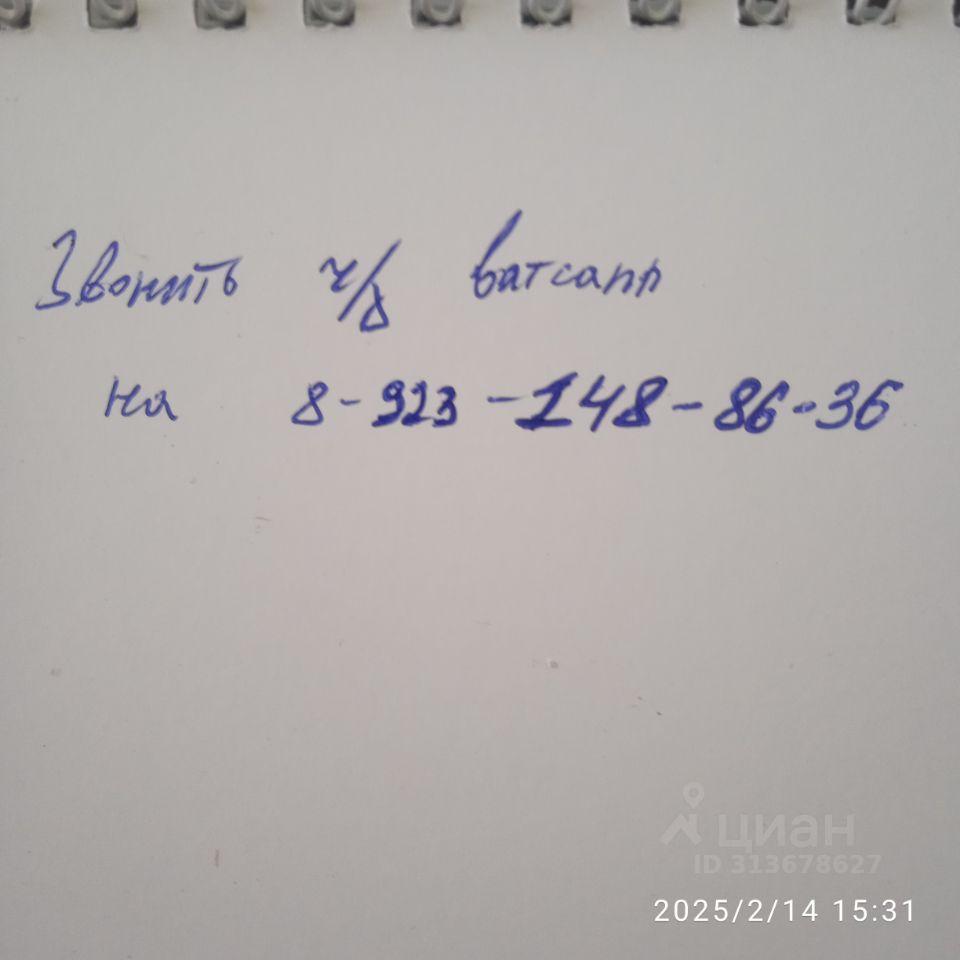 Звонить ч/з ватсапп
на 8-923-148-86-36
циан
ID 313678627
2025/2/14 15:31